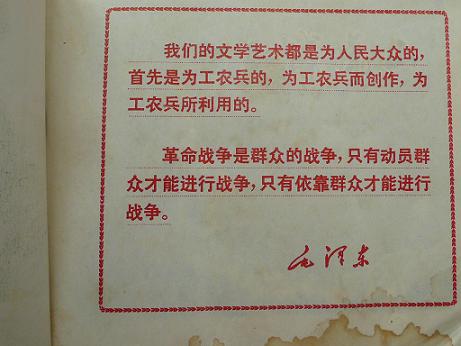 我们的文学艺术都是为人民大众的，
首先是为工农兵的，为工农兵而创作，为
工农兵所利用的。
革命战争是群众的战争，只有动员群
众才能进行战争，只有依靠群众才能进行
战争。
毛泽东